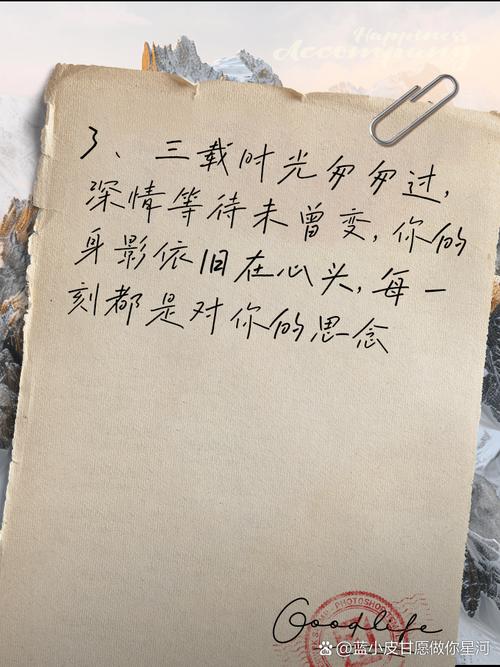 Happiness
Accompany
3、三载时光匆匆过,
深情等待未曾变,你的
身影依旧在心头,每一
刻都是对你的思念
PHOTOSHOP
Goodlife
@蓝小皮甘愿做你星河